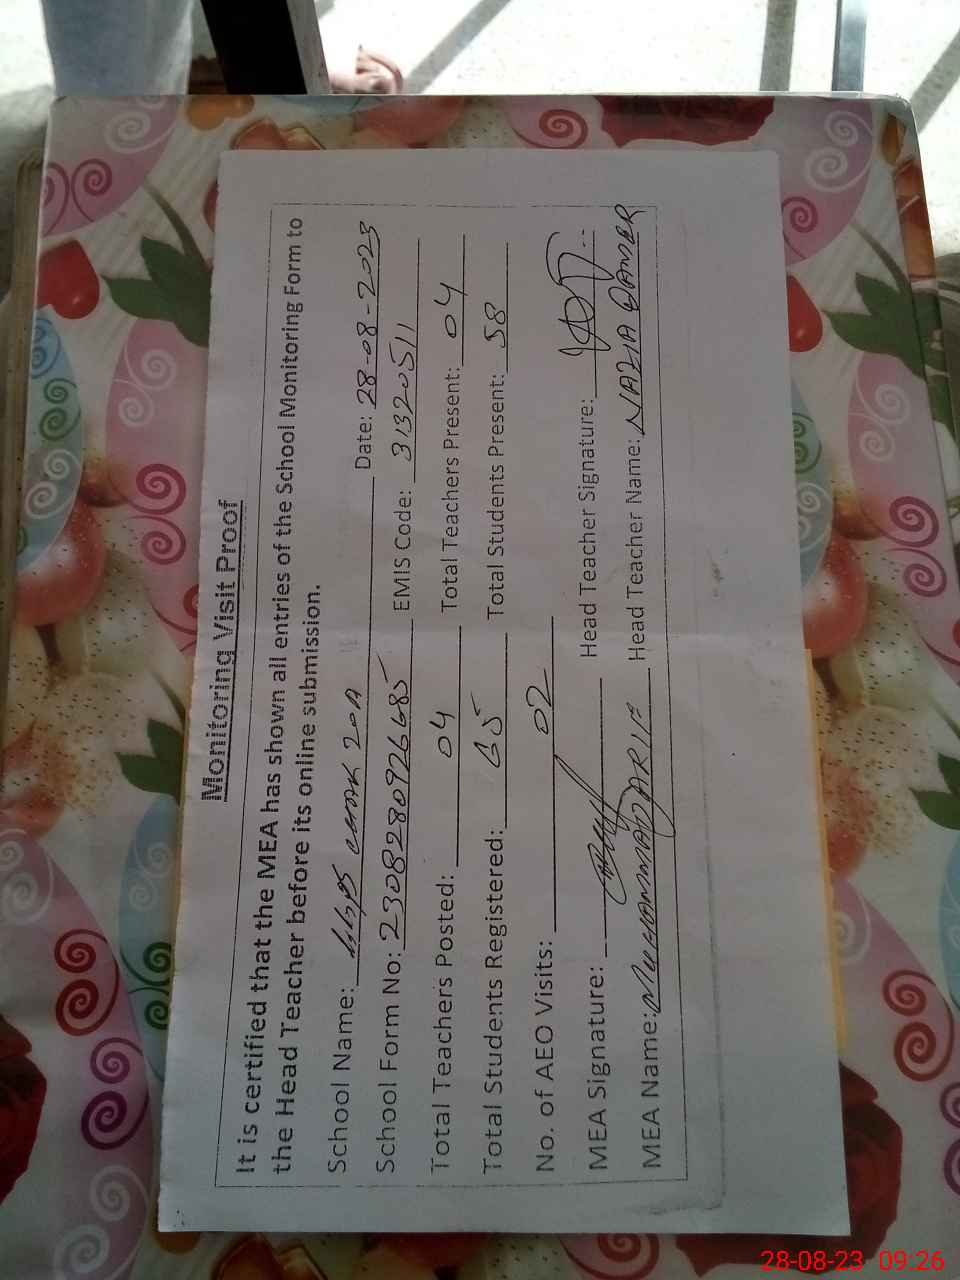 Monitoring Visit Proof
It is certified that the MEA has shown all entries of the School Monitoring Form to
the Head Teacher before its online submission.
School Name: CHAK 20A Date: 28-08-2023
School Form No: 2308280926685 EMIS Code: 31320511
Total Teachers Posted: 04 Total Teachers Present: 04
Total Students Registered: 65 Total Students Present: 58
No. of AEO Visits: 02
MEA Signature: Head Teacher Signature:
MEA Name: MUHAMMAD ARIF Head Teacher Name: NAZIA
28-08-23 09:26